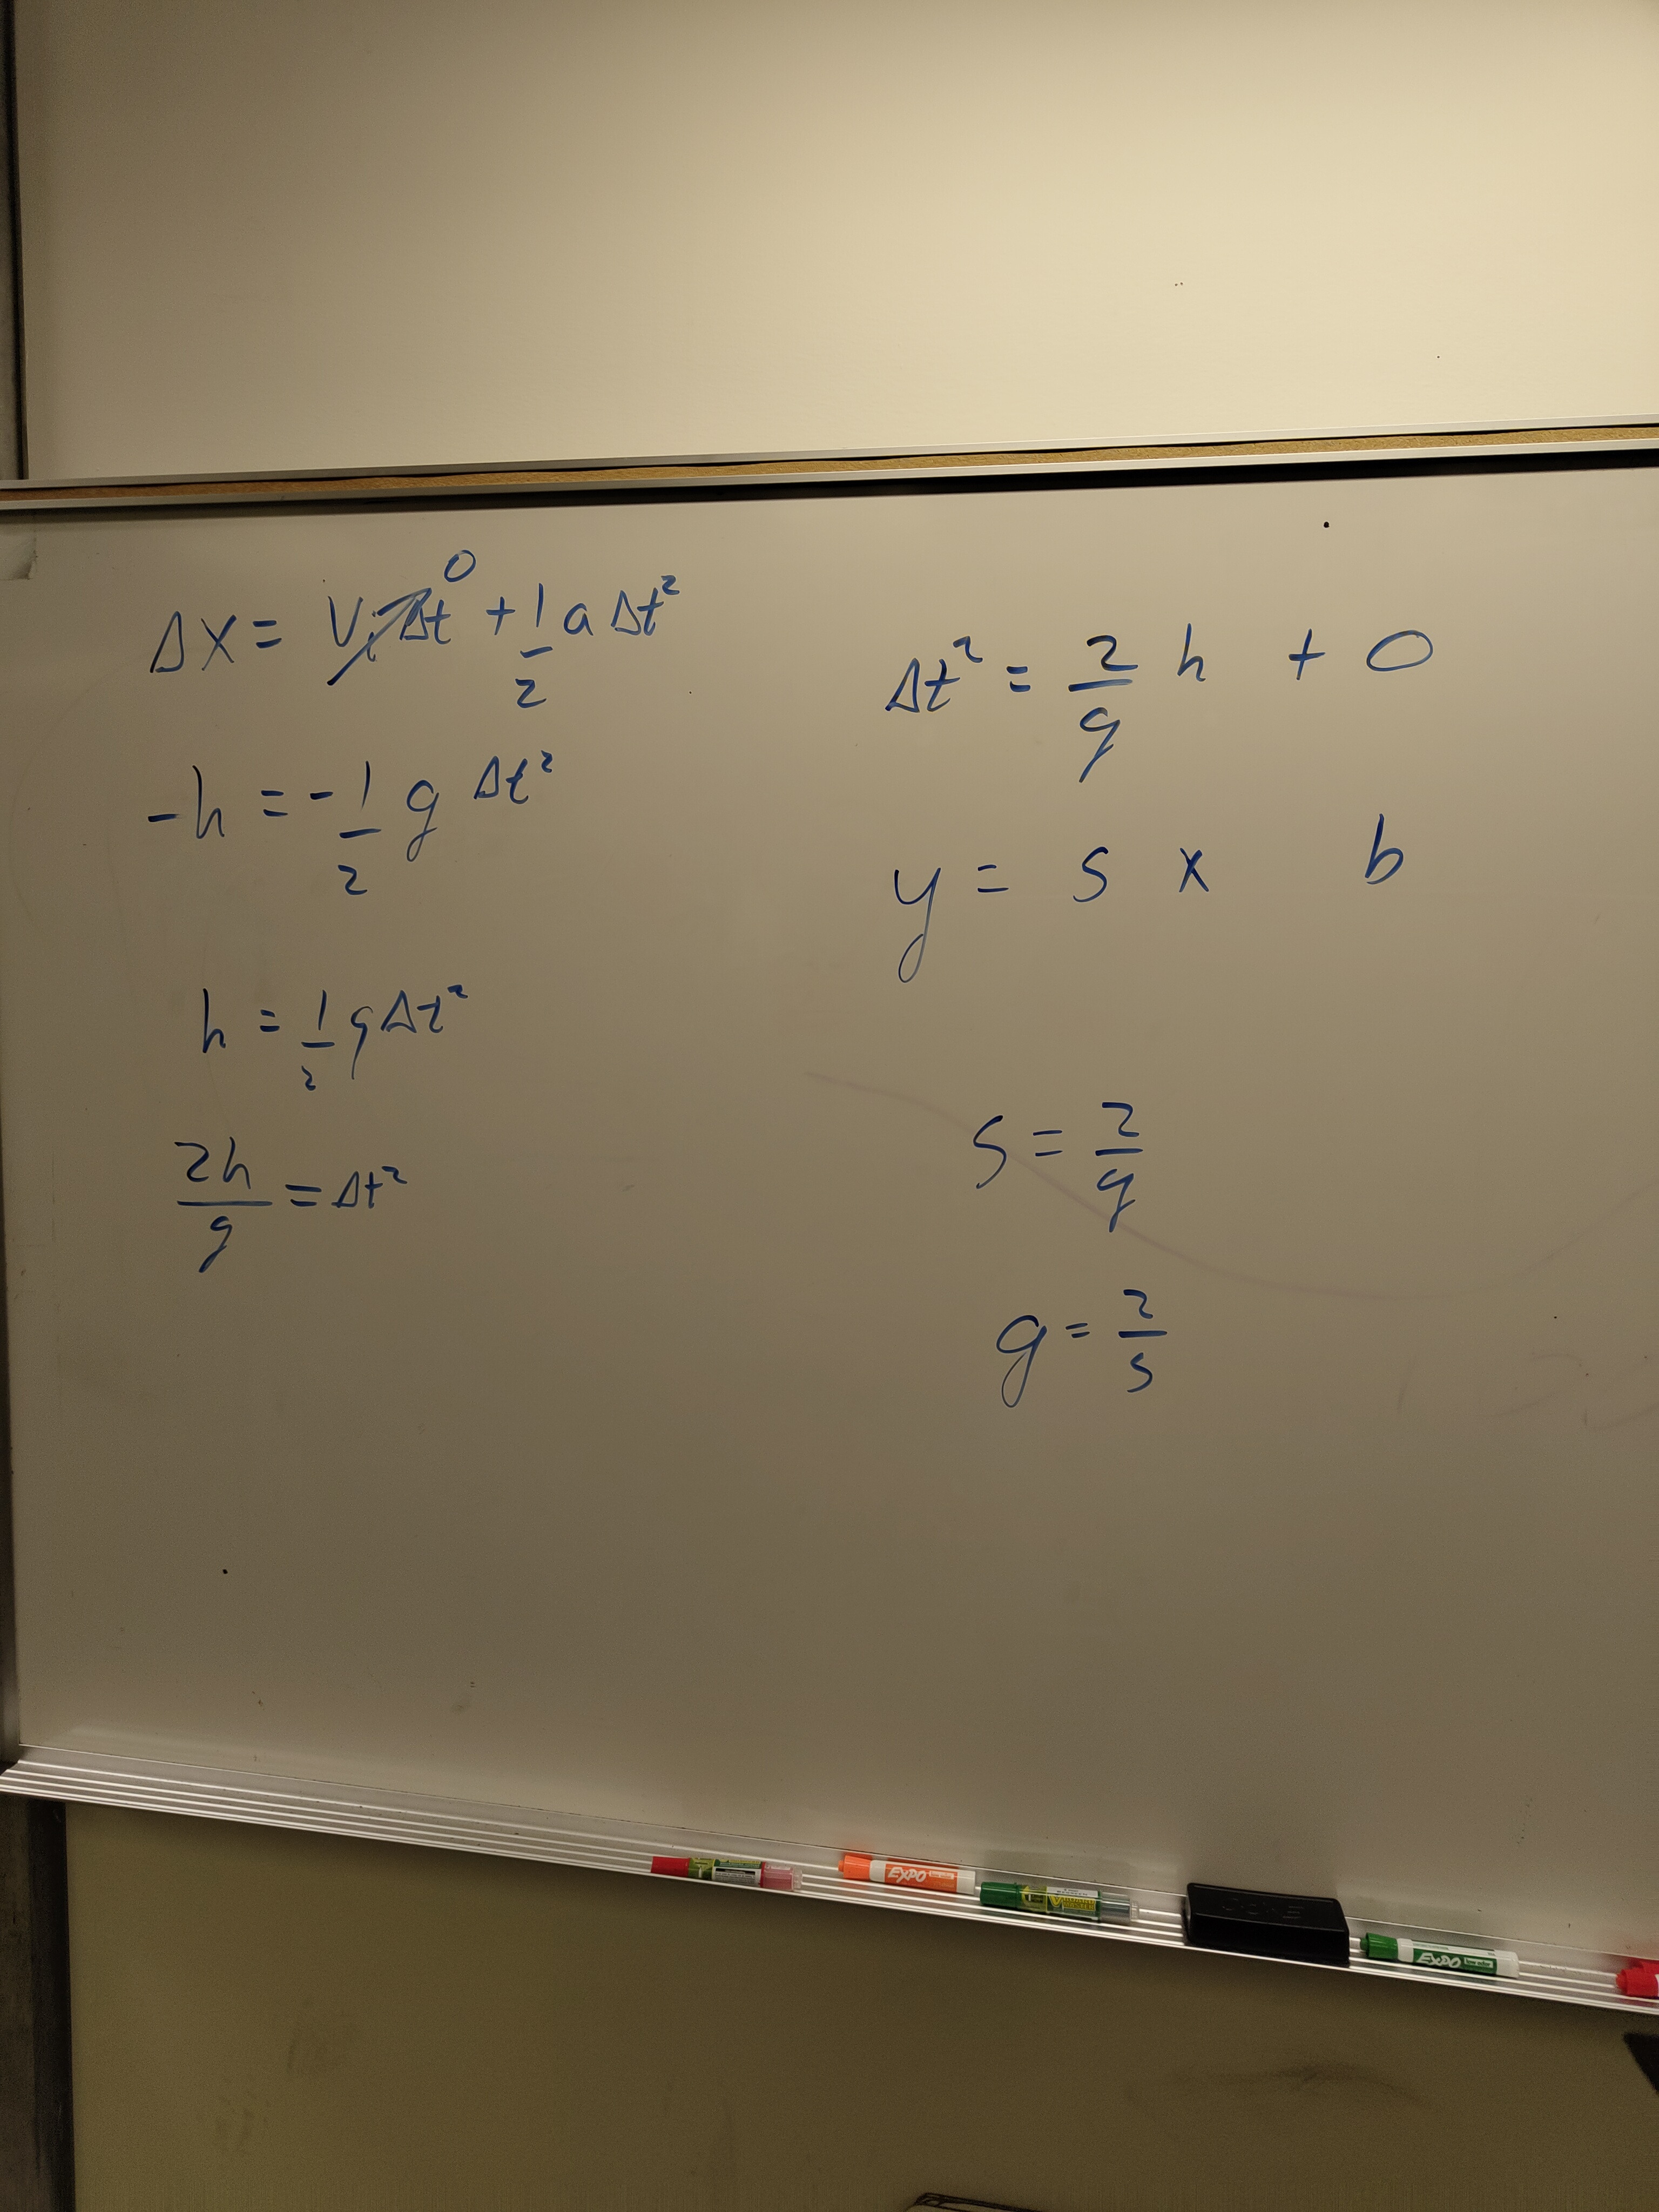 Δx = Vᵢ Δt⁰ + 1/2 a Δt²
-h = -1/2 g Δt²
h = 1/2 g Δt²
2h/g = Δt²
Δt² = 2/g h + 0
y = s x b
s = 2/g
g = 2/s
EXPO
EXPO